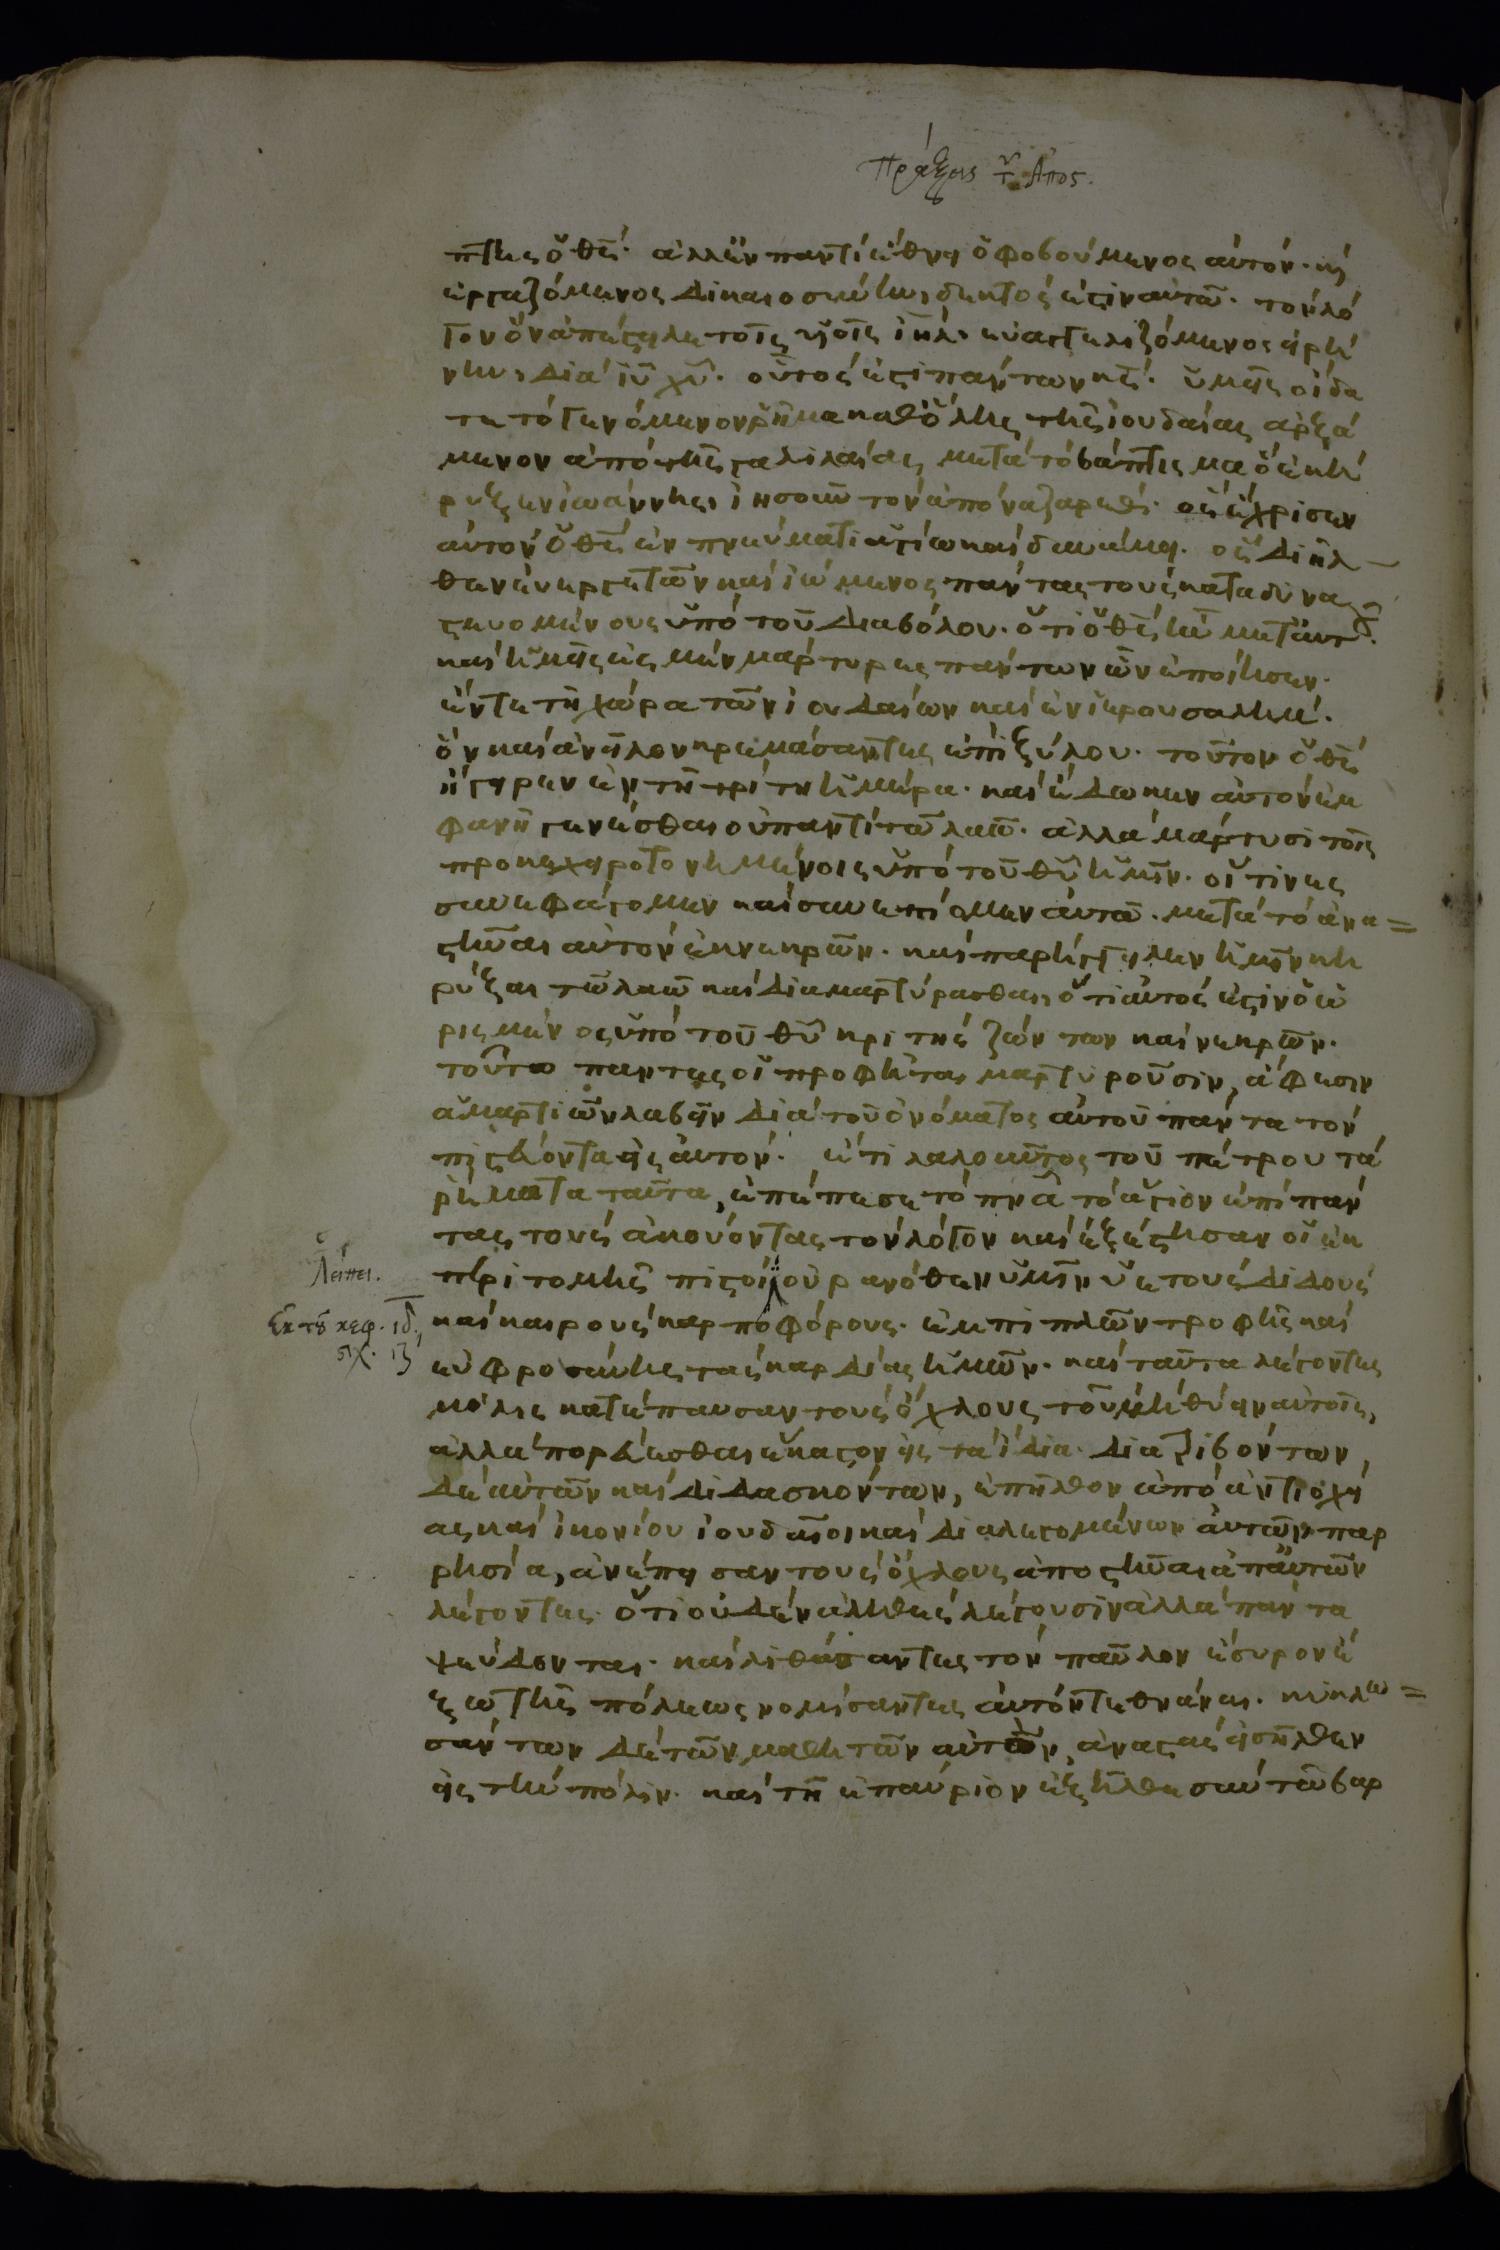 Πράξεις τ Ἀπος.
πτης ὁ θς· ἀλλ' ἐν παντὶ ἔθνει ὁ φοβούμενος αὐτὸν· κὶ
ἐργαζόμενος δικαιοσύνην, δεκτὸς ἐστιν αὐτῶ· τὸν λό
γον ὃν ἀπέστειλε τοῖς υἱοῖς ιηλ· εὐαγγελιζόμενος εἰρή
νην, διὰ ιυ χυ· οὗτος ἐστὶ πάντων κς· ὑμεῖς οἴδα
τε τὸ γενόμενον ῥῆμα καθ' ὅλης τῆς ἰουδαίας ἀρξά
μενον ἀπὸ τῆς γαλιλαίας, μετὰ τὸ βάπτισμα ὃ ἐκή
ρυξεν ἰωάννης, ἰησοῦν τὸν ἀπὸ ναζαρὲθ· ὡς ἔχρισεν
αὐτὸν ὁ θς ἐν πνεύματι ἁγίω καὶ δυνάμει· ὃς διῆλ
θεν ἐνεργετῶν καὶ ἰώμενος πάντας τοὺς καταδυνα
στευομένους ὑπὸ τοῦ διαβόλου· ὅτι ὁ θς ἦν μετ' αὐτοῦ·
καὶ ἡμεῖς ἐσμὲν μάρτυρες πάντων ὧν ἐποίησεν·
ἔντε τῆ χώρα τῶν ἰουδαίων καὶ ἐν ἱερουσαλήμ·
ὃν καὶ ἀνεῖλον κρεμάσαντες ἐπὶ ξύλου· τοῦτον ὁ θς
ἤγειρεν ἐν τῆ τρίτη ἡμέρα· καὶ ἔδωκεν αὐτὸν ἐμ
φανῆ γενέσθαι οὐ παντὶ τῶ λαῶ· ἀλλὰ μάρτυσι τοῖς
προκεχειροτονημένοις ὑπὸ τοῦ θυ ἡμῖν· οἵτινες
συνεφάγομεν καὶ συνεπίομεν αὐτῶ· μετὰ τὸ ἀνα=
στῆναι αὐτὸν ἐκ νεκρῶν· καὶ παρήγγειλεν ἡμῖν κη
ρύξαι τῶ λαῶ καὶ διαμαρτύρασθαι, ὅτι αὐτὸς ἐστιν ὁ ὡ
ρισμένος ὑπὸ τοῦ θυ κριτὴς ζώντων καὶ νεκρῶν·
τοῦτω παντες οἱ προφῆται μαρτυροῦσιν, ἄφεσιν
ἁμαρτιῶν λαβεῖν διὰ τοῦ ὀνόματος αὐτοῦ πάντα τὸν
πιστεύοντα εἰς αὐτὸν· ἔτι λαλοῦντος τοῦ πέτρου τὰ
ῥήματα ταῦτα, ἐπέπεσε τὸ πνα τὸ ἅγιον ἐπὶ πάν
τας τοὺς ἀκούοντας τὸν λόγον καὶ ἐξέστησαν οἱ ἐκ
Λείπει.
περιτομῆς πιστοὶ οὐρανόθεν ὑμῖν ὑετοὺς διδοὺς
Ἐκ τοῦ κεφ. ιδ,
στχ. ιζ
καὶ καιροὺς καρποφόρους· ἐμπιπλῶν τροφῆς καὶ
εὐφροσύνης τὰς καρδίας ἡμῶν· καὶ ταῦτα λέγοντες
μόλις κατέπαυσαν τοὺς ὄχλους τοῦ μὴ θύειν αὐτοῖς,
ἀλλὰ πορεύεσθαι ἕκαστον εἰς τὰ ἴδια· διατριβόντων,
δὲ αὐτῶν καὶ διδασκόντων, ἐπῆλθον ἀπὸ ἀντιοχεί
ας καὶ ἰκονίου ἰουδαῖοι καὶ διαλεγομένων αὐτῶν παρ
ρησία, ἀνέπεισαν τοὺς ὄχλους ἀποστῆναι ἀπ' αὐτῶν
λέγοντες· ὅτι οὐδὲν ἀληθὲς λέγουσιν ἀλλὰ πάντα
ψεύδονται· καὶ λιθάσαντες τὸν παῦλον ἔσυρον ἔ
ξω τῆς πόλεως νομίσαντες αὐτόν τεθνάναι· κυκλω=
σάντων δὲ τῶν μαθητῶν αὐτὸν, ἀναστὰς εἰσῆλθεν
εἰς τὴν πόλιν· καὶ τῆ ἐπαύριον ἐξῆλθε σὺν τῶ βαρ